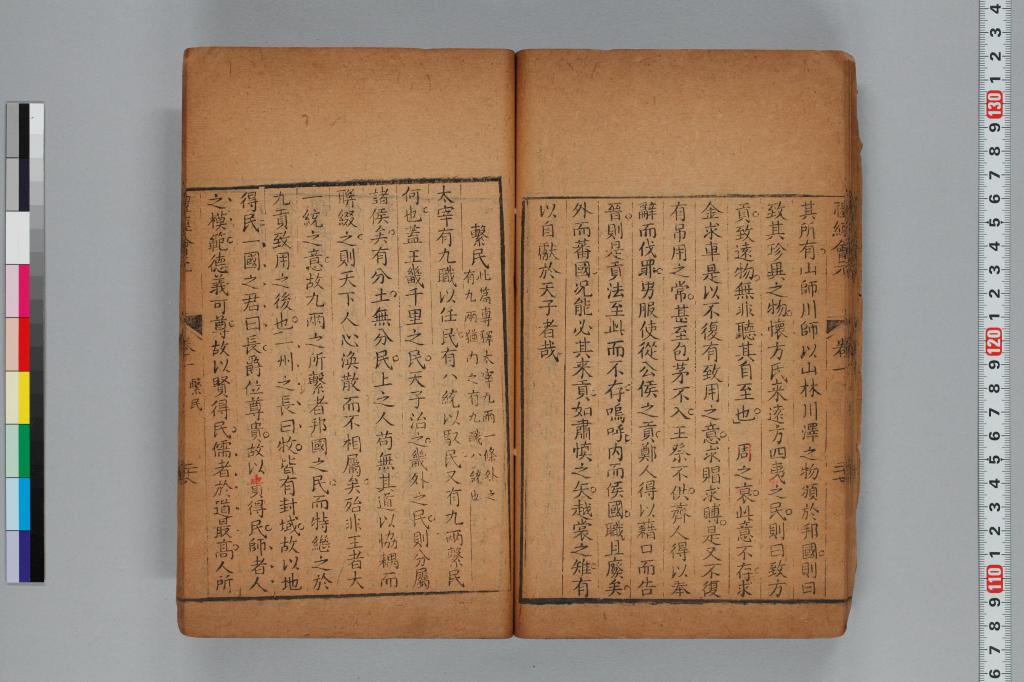 其所有山師川師以山林川澤之物頒於邦國則曰
致其珍異之物懷方氏来逺方四夷之民則曰致方
貢致逺物無非聽其自至也周之衰此意不存求
金求車是以不復有致用之意求賵求賻是又不復
有帛用之常甚至包茅不入王祭不供齊人得以奉
辭而伐罪男服使從公侯之貢鄭人得以藉口而告
晉則是貢法至此而不存嗚呼内而侯國職且廢矣
外而蕃國况能必其来貢如肅慎之矢越裳之雉有
以自獻於天子者哉
繫民
此篇專釋太宰九兩一條外之
有九兩猶内之有九職八統也
太宰有九職以任民有八統以馭民又有九兩繫民
何也盖王畿千里之民天子治之畿外之民則分屬
諸侯矣有分土無分民上之人苟無其道以恊耦而
聨綴之則天下人心渙散而不相屬矣殆非王者大
一統之意故九兩之所繫者邦國之民而特繼之於
九貢致用之後也一州之長曰牧皆有封域故以地
得民一國之君曰長爵位尊貴故以貴得民師者人
之模範德義可尊故以賢得民儒者於道最髙人所
卷一
繫民